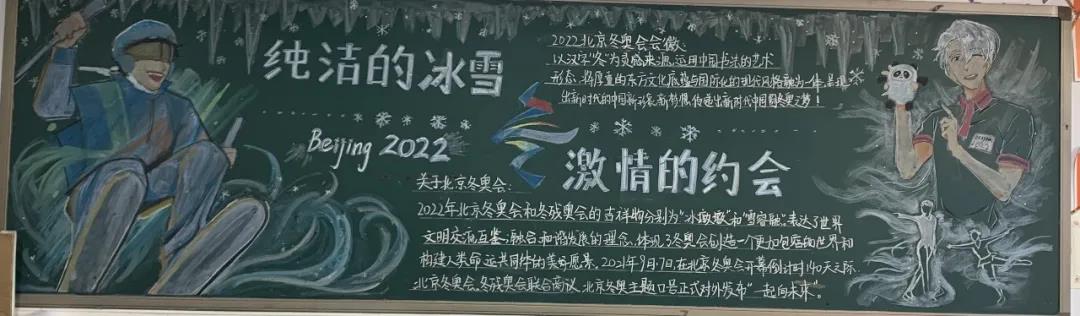 纯洁的冰雪
Beijing 2022
2022北京冬奥会会徽:
以汉字"冬"为灵感来源,运用中国书法的艺术
形态,将厚重的东方文化底蕴与国际化的现代风格融为一体,呈现
出新时代的中国新形象、新梦想,传递出新时代中国圆冬奥之梦!
激情的约会
关于北京冬奥会:
2022年北京冬奥会和冬残奥会的吉祥物分别为"冰墩墩"和"雪容融",表达了世界
文明交流互鉴、融合和谐发展的理念,体现了冬奥会创造一个更加包容的世界和
构建人类命运共同体的美好愿景。2021年9月17日,在北京冬奥会开幕倒计时140天之际,
北京冬奥会、冬残奥会联合商议,北京冬奥主题口号正式对外发布"一起向未来"。